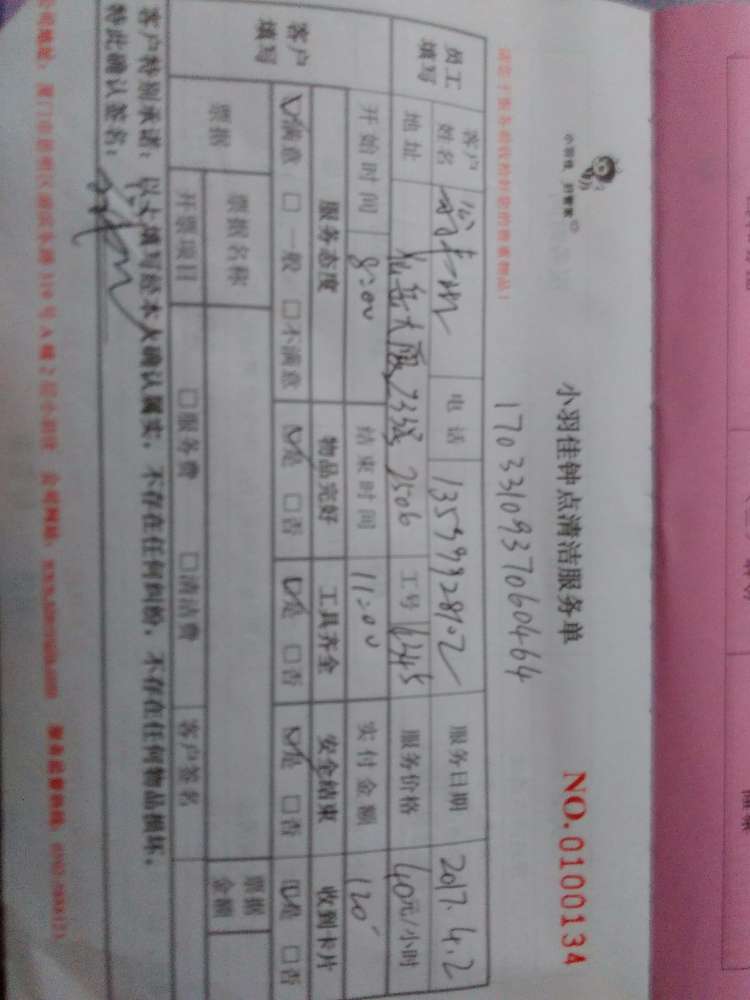 小羽佳 好管家
小羽佳钟点清洁服务单
NO. 0100134
1703310937060464
员工填写
客户姓名 电话 13599928102 服务日期 2017.4.2
地址 龙岳大厦23号2506 工号 6445 服务价格 40元/小时
开始时间 8:00 结束时间 11:00 实付金额 120
客户填写
服务态度 物品完好 工具齐全 安全结束 收到卡片
☑满意 □一般 □不满意 ☑是 □否 ☑是 □否 ☑是 □否 ☑是 □否
票据 票据名称 票据金额
开票项目 □服务费 □清洁费 客户签名
客户特别承诺：以上填写经本人确认属实，不存在任何纠纷，不存在任何物品损坏，
特此确认签名：